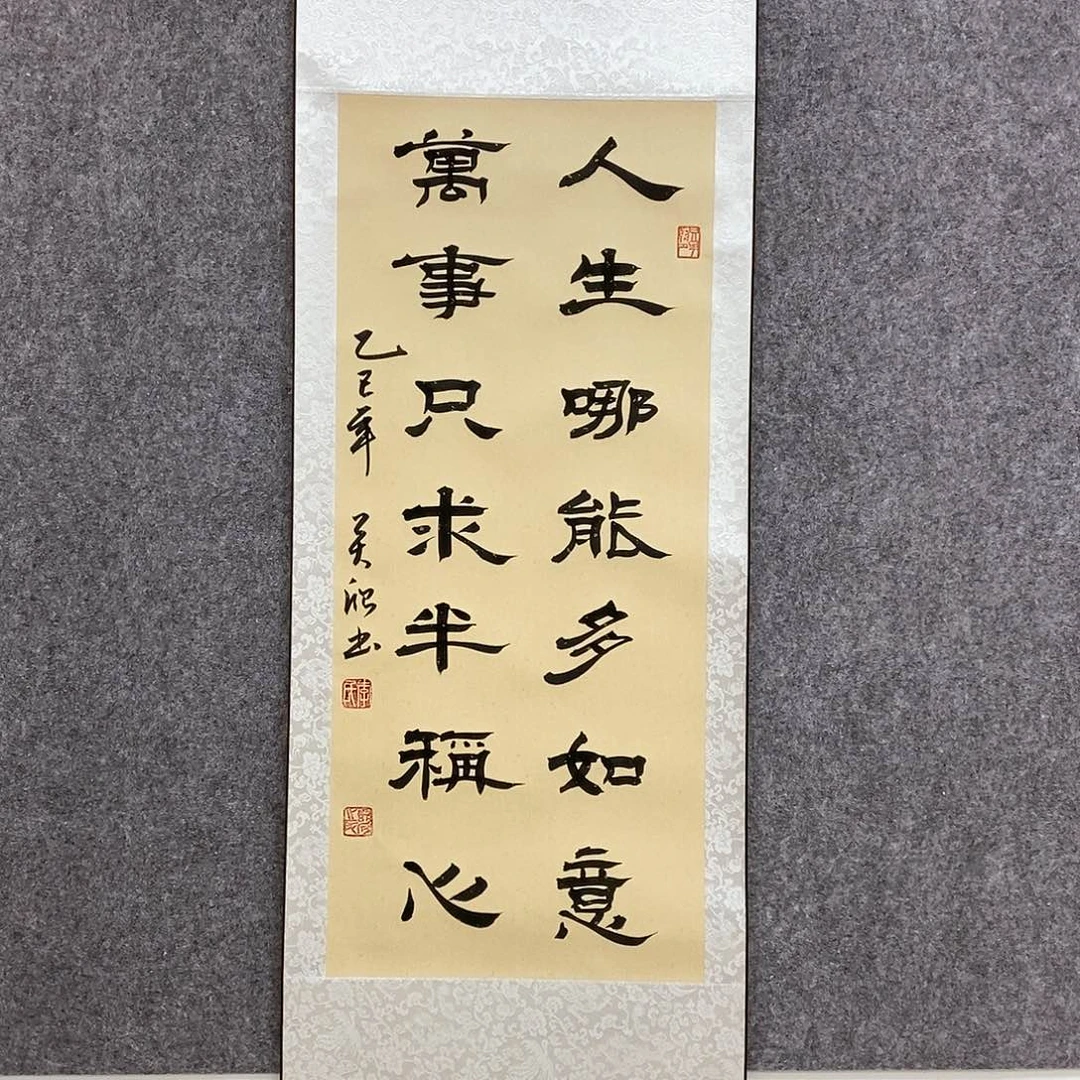 人生哪能多如意
萬事只求半稱心
乙巳年 吴欣书